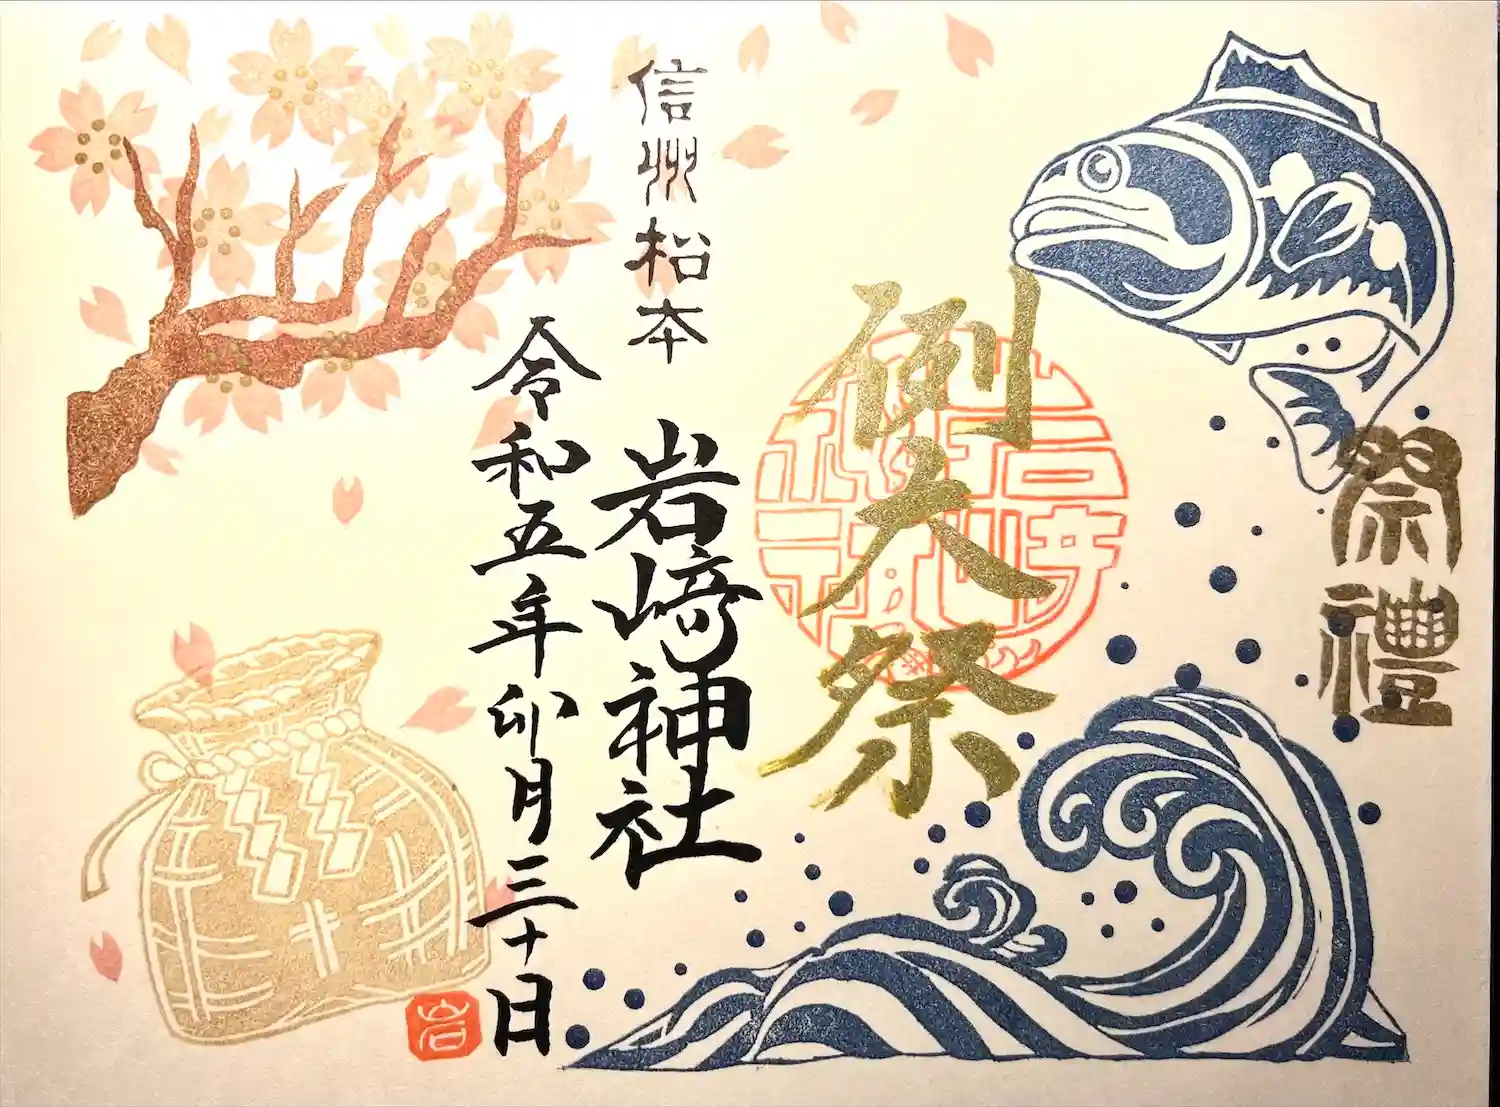 祭禮
例大祭
信州松本
岩﨑神社
令和五年卯月三十日
岩